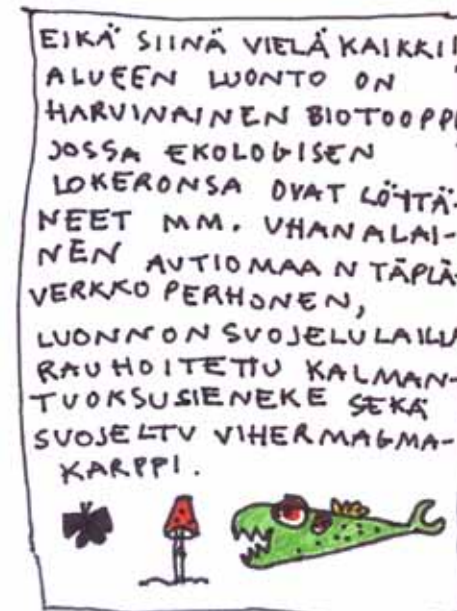 EIKÄ SIINÄ VIELÄ KAIKKI!
ALUEEN LUONTO ON
HARVINAINEN BIOTOOPPI
JOSSA EKOLOGISEN
LOKERONSA OVAT LÖYTÄ-
NEET MM. UHANALAI-
NEN AUTIOMAAN TÄPLÄ-
VERKKO PERHONEN,
LUONNONSUOJELULAILLA
RAUHOITETTU KALMAN-
TUOKSUSIENEKE SEKÄ
SUOJELTU VIHERMAGMA-
KARPPI.